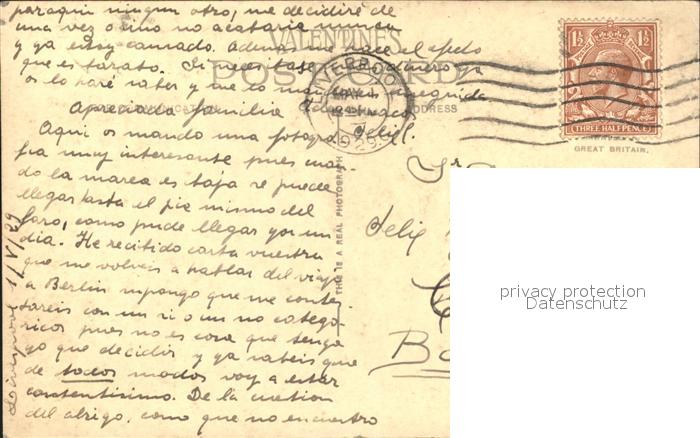 para aqui ningun otro, me decidiré de
una vez o sino no acabaria nunca
y ya estoy cansado. Ademas me hace el efecto
que es barato. Si necesitase dinero ya
os lo haré saber y me lo mandais enseguida
VALENTINES
POST CARD
ADDRESS
LIVERPOOL
MAY 1
1929
1½ 1½
THREE HALFPENCE
GREAT BRITAIN.
Apreciada familia
Felix.
Aqui os mando una fotogra
fia muy interesante pues cuan
do la marea es baja se puede
llegar hasta el pie mismo del
faro, como pude llegar yo un
dia. He recibido carta vuestra
que me volveis a hablar del viaje
a Berlin supongo que me contes
tareis con un si o un no catego
rico pues no es cosa que tenga
yo que decidir y ya sabeis que
de todos modos voy a estar
contentisimo. De la cuestion
del abrigo, como que no encuentro
Liverpool 1/V/29
THIS IS A REAL PHOTOGRAPH
Sr
Felix
Ba
privacy protection
Datenschutz